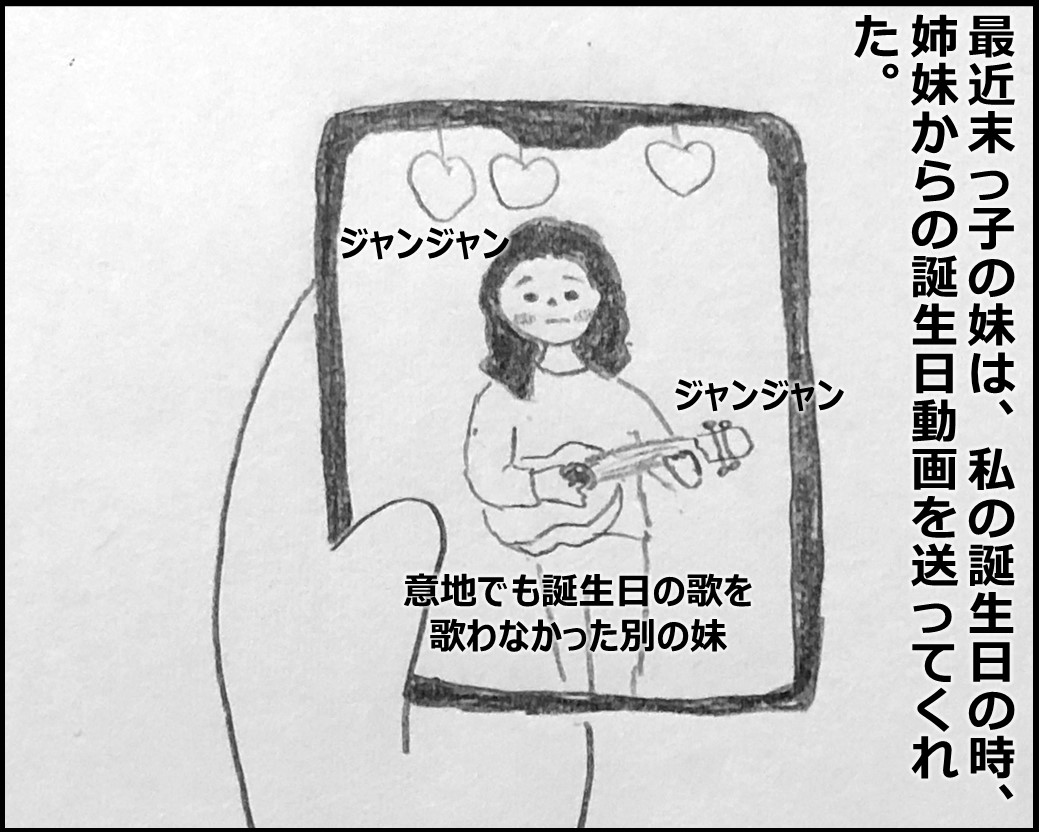 最近末っ子の妹は、私の誕生日の時、
姉妹からの誕生日動画を送ってくれ
た。
ジャンジャン
ジャンジャン
意地でも誕生日の歌を
歌わなかった別の妹